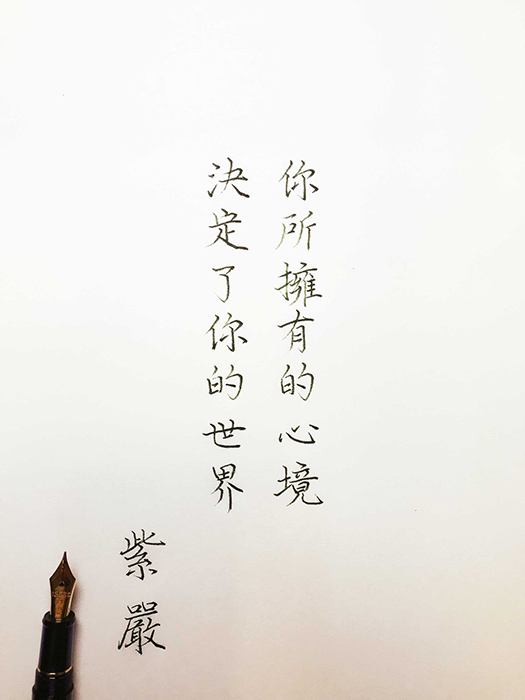 你所擁有的心境
決定了你的世界
紫嚴